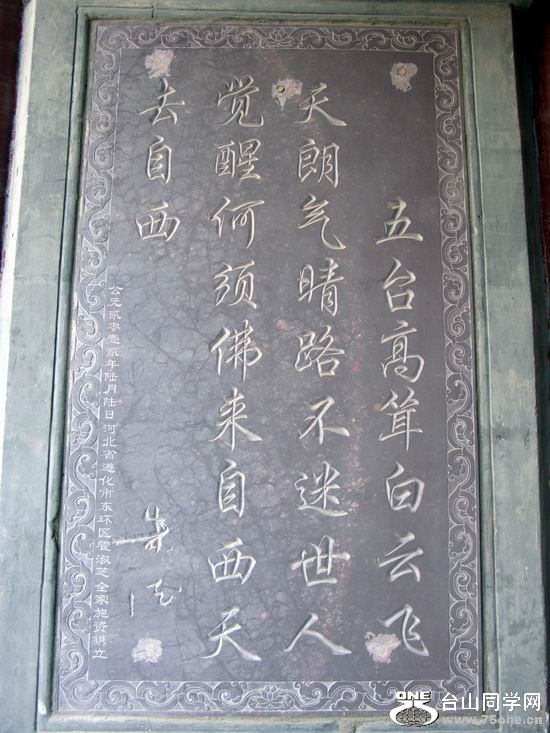 五台高耸白云飞
天朗气晴路不迷世人
觉醒何须佛来自西天
去自西
朱德
公元贰零壹贰年陆月陆日河北省遵化市东环区瞿淑芝全家施资携立
ONE
台山同学网
www.75one.cn